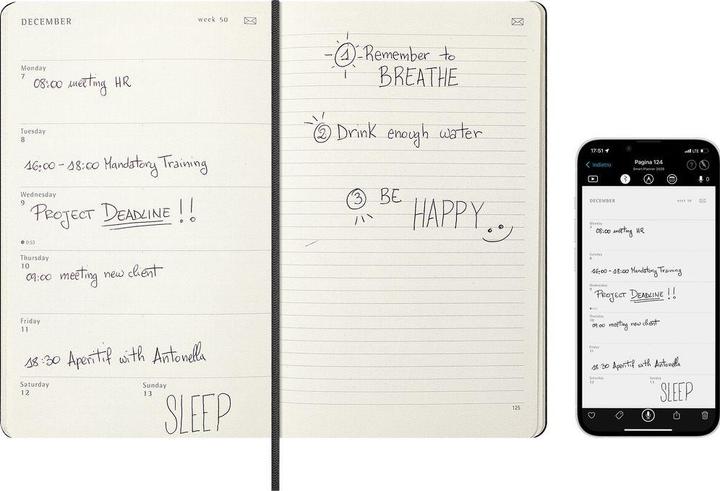 DECEMBER week 50
Monday
7
08:00 meeting HR
Tuesday
8
16:00 - 18:00 Mandatory Training
Wednesday
9
PROJECT DEADLINE !!
0:53
Thursday
10
09:00 meeting new client
Friday
11
18:30 Aperitif with Antonella
Saturday
12
Sunday
13
SLEEP
1 Remember to
BREATHE
2 Drink enough water
3 BE
HAPPY
125
17:51 LTE
Indietro
Pagina 124
Smart Planner 2020
0
DECEMBER week 50
Monday
7
08:00 meeting HR
Tuesday
8
16:00 - 18:00 Mandatory Training
Wednesday
9
PROJECT DEADLINE !!
Thursday
10
09:00 meeting new client
Friday
11
18:30 Aperitif with Antonella
Saturday
12
Sunday
13
SLEEP